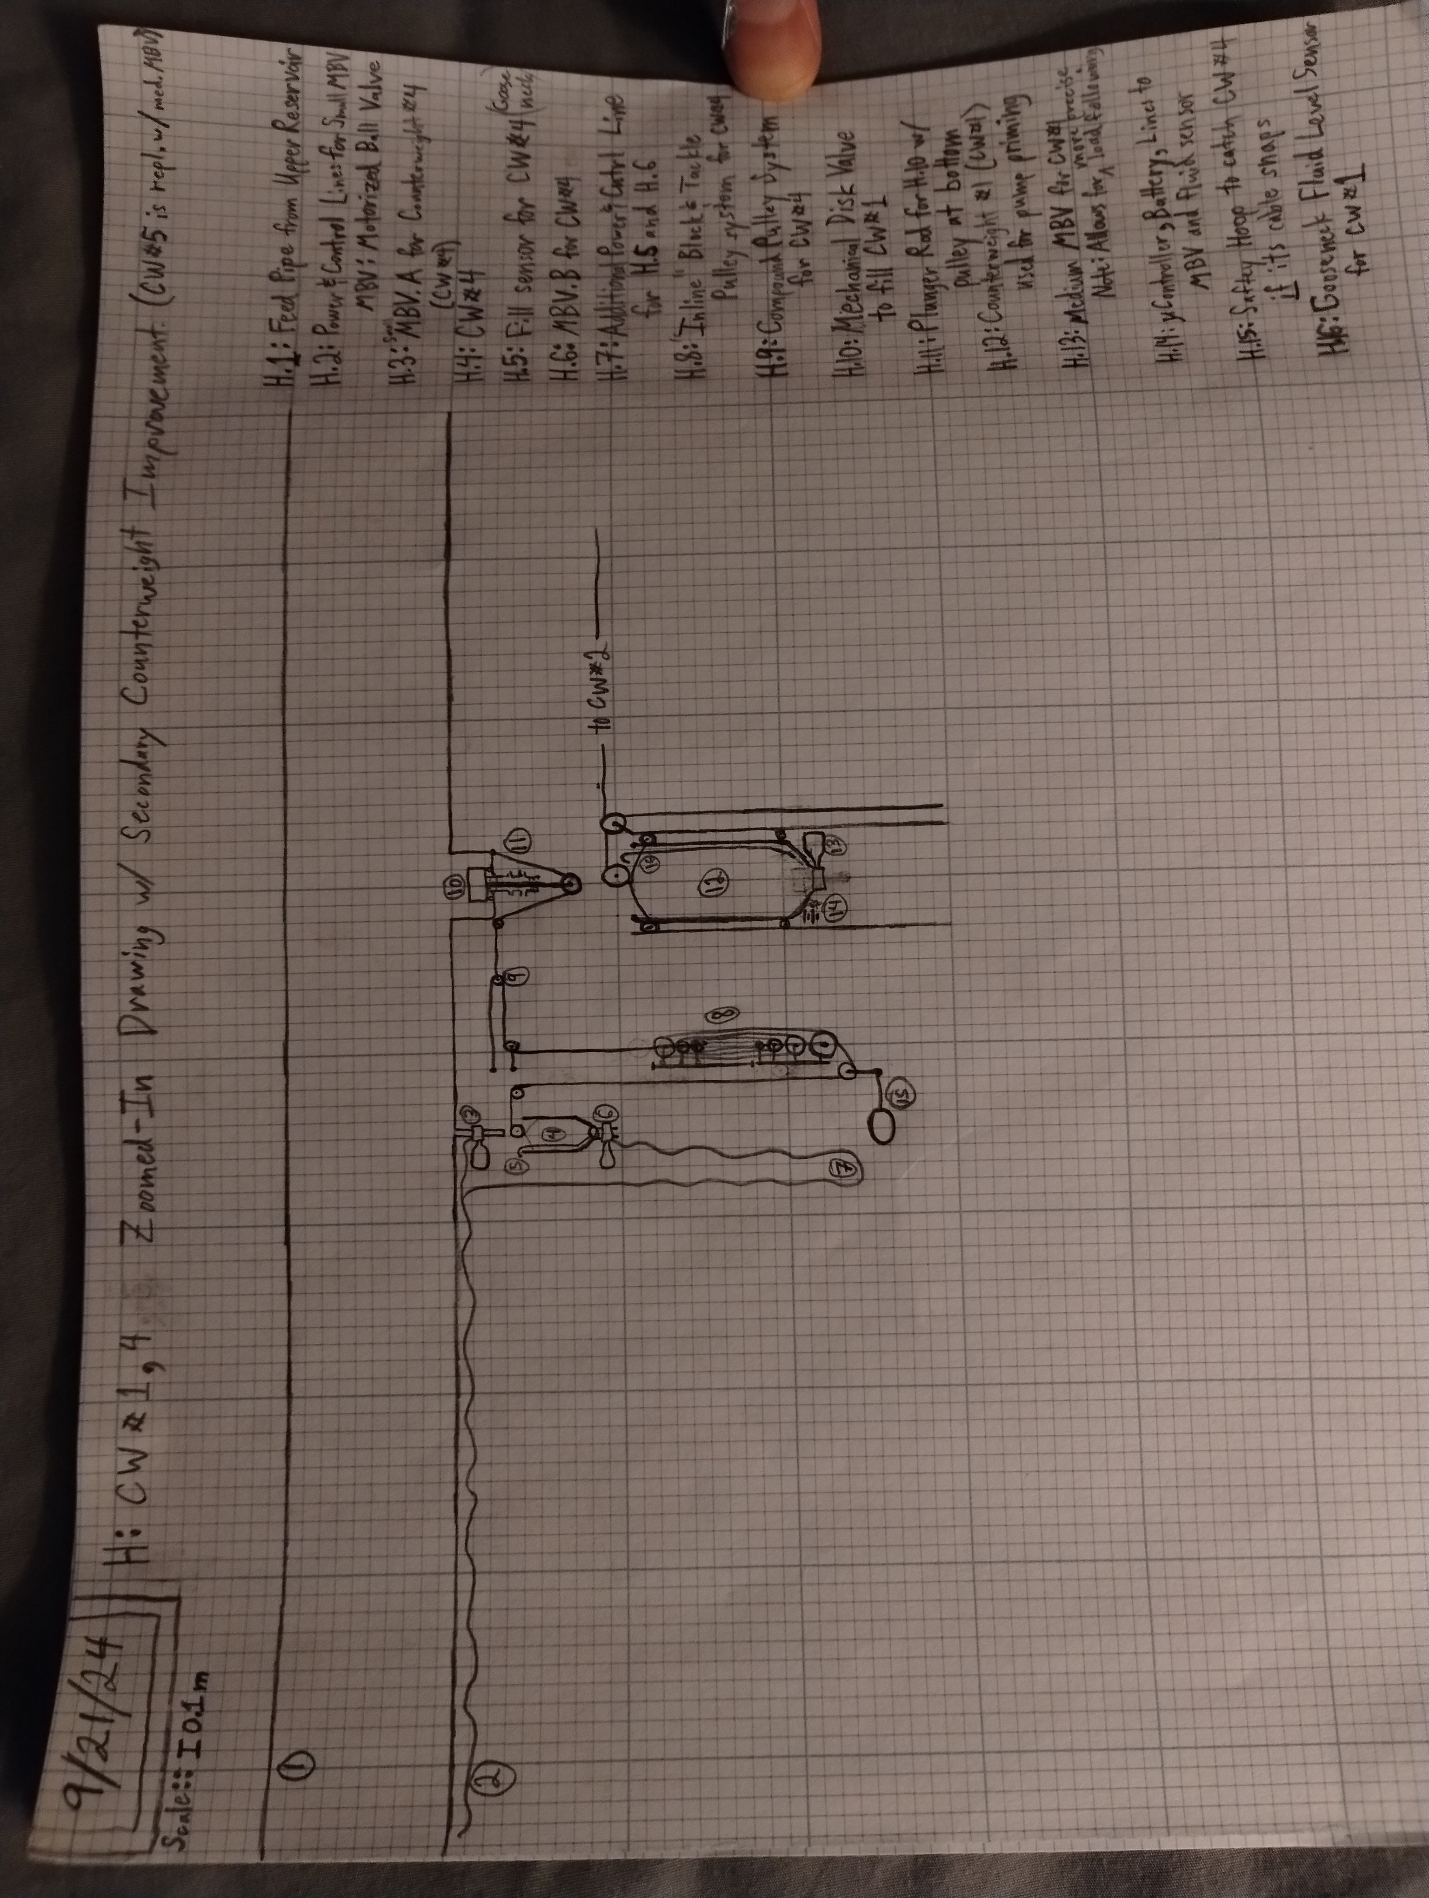 9/21/24
Scale:: I 0.1m
H: CW#1,4 Zoomed-In Drawing w/ Secondary Counterweight Improvement. (CW#5 is repl. w/ med. MBV)
H.1: Feed Pipe from Upper Reservoir
H.2: Power & Control Lines for Small MBV
MBV: Motorized Ball Valve
H.3: MBV.A for Counterweight #4
(CW#4)
H.4: CW#4
H.5: Fill sensor for CW#4 (Goose neck)
H.6: MBV.B for CW#4
H.7: Additional Power & Cntrl Line
for H.5 and H.6
H.8: "Inline" Block & Tackle
Pulley system for CW#4
H.9: Compound Pulley System
for CW#4
H.10: Mechanical Disk Valve
to fill CW#1
H.11: Plunger Rod for H.10 w/
pulley at bottom
H.12: Counterweight #1 (CW#1)
used for pump priming
H.13: Medium MBV for CW#1
Note: Allows for more precise load following
H.14: μController, Battery, Lines to
MBV and fluid sensor
H.15: Saftey Hoop to catch CW#4
if its cable snaps
H.16: Gooseneck Fluid Level Sensor
for CW#1
1
2
3
4
5
6
7
8
9
10
11
to CW#2
16
12
13
14
15